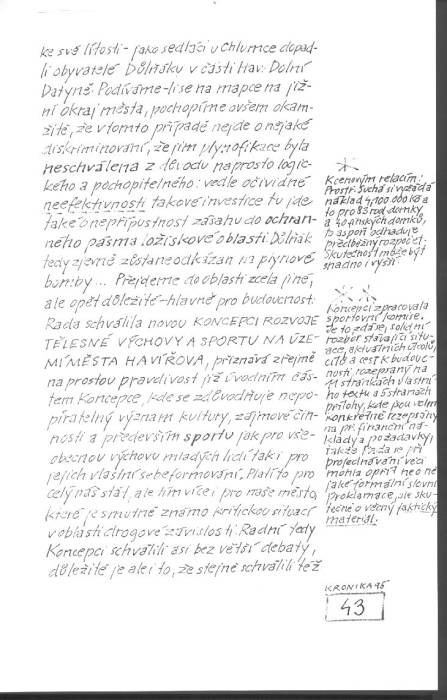 ke své lítosti - jako sedláci u Chlumce dopad-
li obyvatelé Důlňáku v části Hav. Dolní
Datyně. Podíváme-li se na mapce na již-
ní okraj města, pochopíme ovšem okam-
žitě, že v tomto případě nejde o nějaké
diskriminování, že jim plynofikace byla
neschválena z důvodu naprosto logic-
kého a pochopitelného: vedle očividné
neefektivnosti takové investice tu jde
také o nepřípustnost zásahu do ochran-
ného pásma ložiskové oblasti. Důlňák
tedy zjevně zůstane odkázán na plynové
bomby... Přejdeme do oblasti zcela jiné,
ale opět důležité-hlavně pro budoucnost:
Rada schválila novou KONCEPCI ROZVOJE
TĚLESNÉ VÝCHOVY A SPORTU NA ÚZE-
MÍ MĚSTA HAVÍŘOVA, přiznává zřejmě
naprostou pravdivost již úvodním čás-
tem Koncepce, kde se zdůvodňuje nepo-
piratelný význam kultury, zájmové čin-
nosti a především sportu jak pro vše-
obecnou výchovu mladých lidí tak i pro
jejich vlastní sebeformování. Platí to pro
celý náš stát, ale tím více i pro naše město,
které je smutně známo kritickou situací
v oblasti drogové závislosti. Radní tedy
Koncepci schválili asi bez větší debaty,
důležité je ale i to, že stejně schválili též
*
K cenovým relacím:
Prostř. Suchá si vyžádá
náklad 4,100 000 Kč a
to pro 83 rod. domky
a 40 finských domků,
to aspoň odhaduje
předběžný rozpočet.
Skutečnost může být
snadno i vyšší.
**
Koncepci zpracovala
sportovní komise.
Je to zdá se, solidní
rozbor stávající situ-
ace, aktuálních úkolů,
cílů a cest k budouc-
nosti, rozepsaný na
11 stránkách vlastní-
ho textu a 5 stranách
přílohy, kde jsou velmi
konkrétně rozepsány
na př. finanční ná-
klady a požadavky,
takže Rada se při
projednávání věci
mohla opřít ne o ně-
jaké formální slovní
proklamace, ale sku-
tečně o věcný faktický
materiál.
KRONIKA 95
43